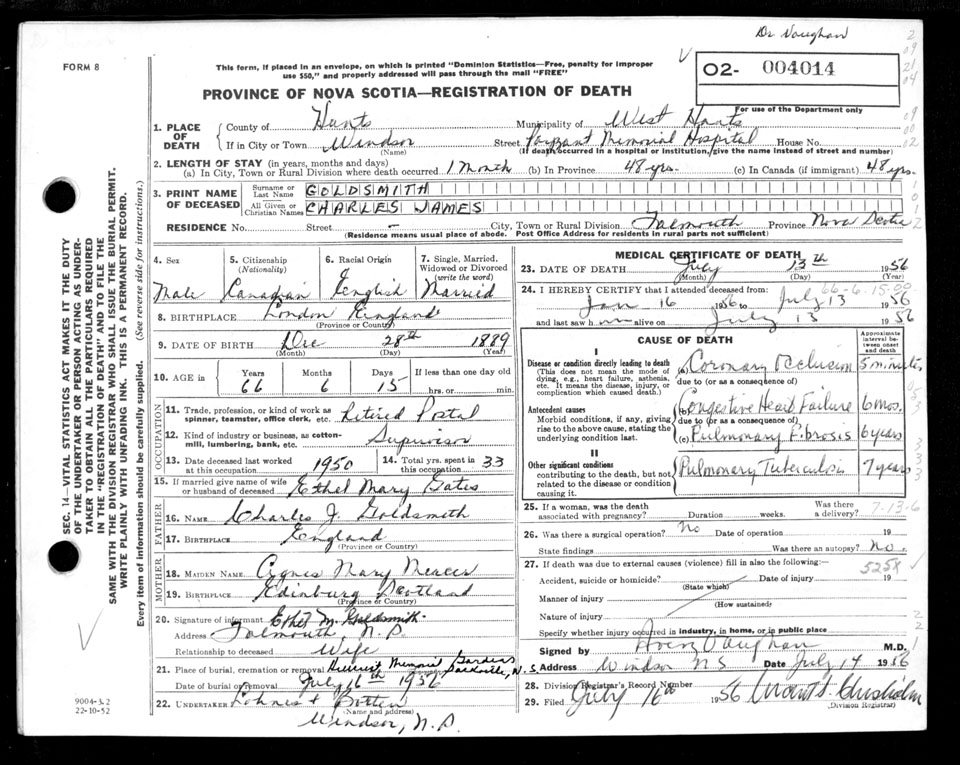 Dr Vaughan
FORM 8
This form, if placed in an envelope, on which is printed "Dominion Statistics—Free, penalty for improper
use $50," and properly addressed will pass through the mail "FREE"
O2- 004014
PROVINCE OF NOVA SCOTIA—REGISTRATION OF DEATH
For use of the Department only
1. PLACE OF DEATH
County of Hants Municipality of West Hants
If in City or Town Windsor Street Payzant Memorial Hospital House No.
(Name) (If death occurred in a hospital or institution, give the name instead of street and number)
2. LENGTH OF STAY (in years, months and days)
(a) In City, Town or Rural Division where death occurred 1 Month (b) In Province 48 yrs. (c) In Canada (if immigrant) 48 yrs.
3. PRINT NAME OF DECEASED
Surname or Last Name GOLDSMITH
All Given or Christian Names CHARLES JAMES
RESIDENCE No. Street - City, Town or Rural Division Falmouth Province Nova Scotia
(Residence means usual place of abode. Post Office Address for residents in rural parts not sufficient)
4. Sex Male
5. Citizenship (Nationality) Canadian
6. Racial Origin English
7. Single, Married, Widowed or Divorced (write the word) Married
8. BIRTHPLACE London England
(Province or Country)
9. DATE OF BIRTH Dec 28th 1889
(Month) (Day) (Year)
10. AGE in Years 66 Months 6 Days 15 If less than one day old hrs. or min.
OCCUPATION
11. Trade, profession, or kind of work as spinner, teamster, office clerk, etc. Retired Postal
12. Kind of industry or business, as cotton-mill, lumbering, bank, etc. Supervisor
13. Date deceased last worked at this occupation 1950 14. Total yrs. spent in this occupation 33
15. If married give name of wife or husband of deceased Ethel Mary Gates
FATHER
16. NAME Charles J. Goldsmith
17. BIRTHPLACE England
(Province or Country)
MOTHER
18. MAIDEN NAME Agnes Mary Mercer
19. BIRTHPLACE Edinburg Scotland
(Province or Country)
20. Signature of informant Ethel M. Goldsmith
Address Falmouth, N.S
Relationship to deceased Wife
21. Place of burial, cremation or removal Memorial Gardens Sackville, N.S.
Date of burial or removal July 16th 1956
22. UNDERTAKER Lohnes + Botten
Windsor, N.S
MEDICAL CERTIFICATE OF DEATH
23. DATE OF DEATH July 13th 1956
(Month) (Day)
66-6-15-00
24. I HEREBY CERTIFY that I attended deceased from:
Jan 16 1956 to July 13 1956
and last saw him alive on July 13 1956
CAUSE OF DEATH
Approximate interval between onset and death
I
Disease or condition directly leading to death (a) Coronary Occlusion 5 minutes
(This does not mean the mode of dying, e.g., heart failure, asthenia, etc. It means the disease, injury, or complication which caused death.)
due to (or as a consequence of)
Antecedent causes (b) Congestive Heart Failure 6 mos.
Morbid conditions, if any, giving rise to the above cause, stating the underlying condition last.
due to (or as a consequence of)
(c) Pulmonary Fibrosis 6 years
II
Other significant conditions Pulmonary Tuberculosis 7 years
contributing to the death, but not related to the disease or condition causing it.
25. If a woman, was the death associated with pregnancy? Duration weeks. Was there a delivery?
7-13-6
26. Was there a surgical operation? No Date of operation 19
State findings Was there an autopsy? No.
27. If death was due to external causes (violence) fill in also the following:—
5258
Accident, suicide or homicide? Date of injury 19
(State which)
Manner of injury
(How sustained)
Nature of injury
Specify whether injury occurred in industry, in home, or in public place
Signed by Avery Vaughan M.D.
Address Windsor NS Date July 14 1956
28. Division Registrar's Record Number
29. Filed July 16th 1956 Chisholm
(Division Registrar)
SEC. 14—VITAL STATISTICS ACT MAKES IT THE DUTY
OF THE UNDERTAKER OR PERSON ACTING AS UNDER-
TAKER TO OBTAIN ALL THE PARTICULARS REQUIRED
IN THE "REGISTRATION OF DEATH" AND TO FILE THE
SAME WITH THE DIVISION REGISTRAR WHO SHALL ISSUE THE BURIAL PERMIT.
WRITE PLAINLY WITH UNFADING INK. THIS IS A PERMANENT RECORD.
Every item of information should be carefully supplied. (See reverse side for instructions.)
9004-3.2
22-10-52